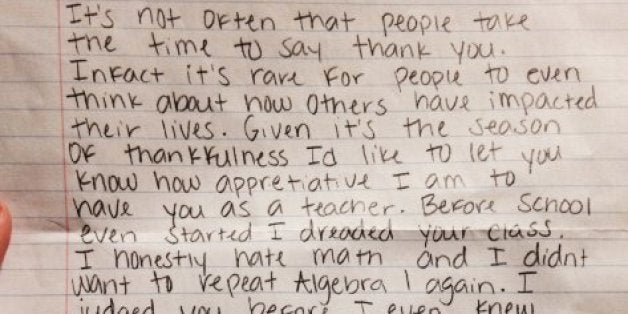 It's not often that people take
the time to say thank you.
Infact it's rare for people to even
think about how others have impacted
their lives. Given it's the season
of thankfulness Id like to let you
know how appretiative I am to
have you as a teacher. Before School
even started I dreaded your class.
I honestly hate math and I didnt
want to repeat Algebra 1 again. I
judged you before I even knew